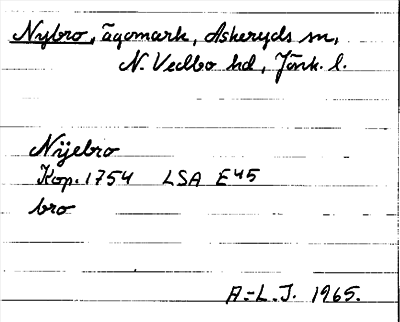 Nybro, ägomark, Askeryds sn,
N. Vedbo hd, Jönk. l.
Nÿebro
Kop. 1754 LSA E45
bro
A-L. J. 1965.